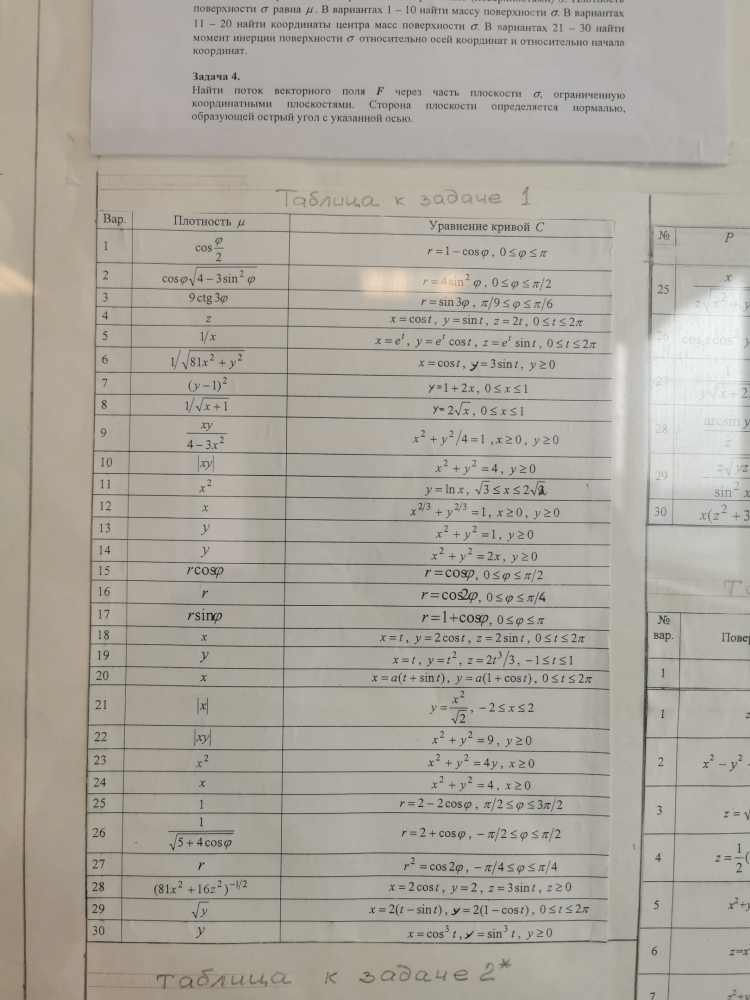 поверхности σ равна μ. В вариантах 1 – 10 найти массу поверхности σ. В вариантах
11 – 20 найти координаты центра масс поверхности σ. В вариантах 21 – 30 найти
момент инерции поверхности σ относительно осей координат и относительно начала
координат.
Задача 4.
Найти поток векторного поля F через часть плоскости σ, ограниченную
координатными плоскостями. Сторона плоскости определяется нормалью,
образующей острый угол с указанной осью.
Таблица к задаче 1
Вар. Плотность μ Уравнение кривой C
1 cos φ/2 r = 1 − cosφ, 0 ≤ φ ≤ π
2 cosφ√(4 − 3sin² φ) r = 4sin² φ, 0 ≤ φ ≤ π/2
3 9ctg3φ r = sin3φ, π/9 ≤ φ ≤ π/6
4 z x = cost, y = sint, z = 2t, 0 ≤ t ≤ 2π
5 1/x x = e^t, y = e^t cost, z = e^t sint, 0 ≤ t ≤ 2π
6 1/√(81x² + y²) x = cost, y = 3sint, y ≥ 0
7 (y − 1)² y = 1 + 2x, 0 ≤ x ≤ 1
8 1/√(x + 1) y = 2√x, 0 ≤ x ≤ 1
9 xy/(4 − 3x²) x² + y²/4 = 1, x ≥ 0, y ≥ 0
10 |xy| x² + y² = 4, y ≥ 0
11 x² y = lnx, √3 ≤ x ≤ 2√2
12 x x^(2/3) + y^(2/3) = 1, x ≥ 0, y ≥ 0
13 y x² + y² = 1, y ≥ 0
14 y x² + y² = 2x, y ≥ 0
15 rcosφ r = cosφ, 0 ≤ φ ≤ π/2
16 r r = cos2φ, 0 ≤ φ ≤ π/4
17 rsinφ r = 1 + cosφ, 0 ≤ φ ≤ π
18 x x = t, y = 2cost, z = 2sint, 0 ≤ t ≤ 2π
19 y x = t, y = t², z = 2t³/3, −1 ≤ t ≤ 1
20 x x = a(t + sint), y = a(1 + cost), 0 ≤ t ≤ 2π
21 |x| y = x²/√2, −2 ≤ x ≤ 2
22 |xy| x² + y² = 9, y ≥ 0
23 x² x² + y² = 4y, x ≥ 0
24 x x² + y² = 4, x ≥ 0
25 1 r = 2 − 2cosφ, π/2 ≤ φ ≤ 3π/2
26 1/√(5 + 4cosφ) r = 2 + cosφ, −π/2 ≤ φ ≤ π/2
27 r r² = cos2φ, −π/4 ≤ φ ≤ π/4
28 (81x² + 16z²)^(−1/2) x = 2cost, y = 2, z = 3sint, z ≥ 0
29 √y x = 2(t − sint), y = 2(1 − cost), 0 ≤ t ≤ 2π
30 y x = cos³ t, y = sin³ t, y ≥ 0
таблица к задаче 2*
№ P
25 x
26
27 1
28 arcsin y / z
29 z√yz / sin² x
30 x(z² + 3
№
вар. Повер
1
1 z
2 x² − y²
3 z = √
4 z = 1/2 (
5 x² + y
6 z=x
7